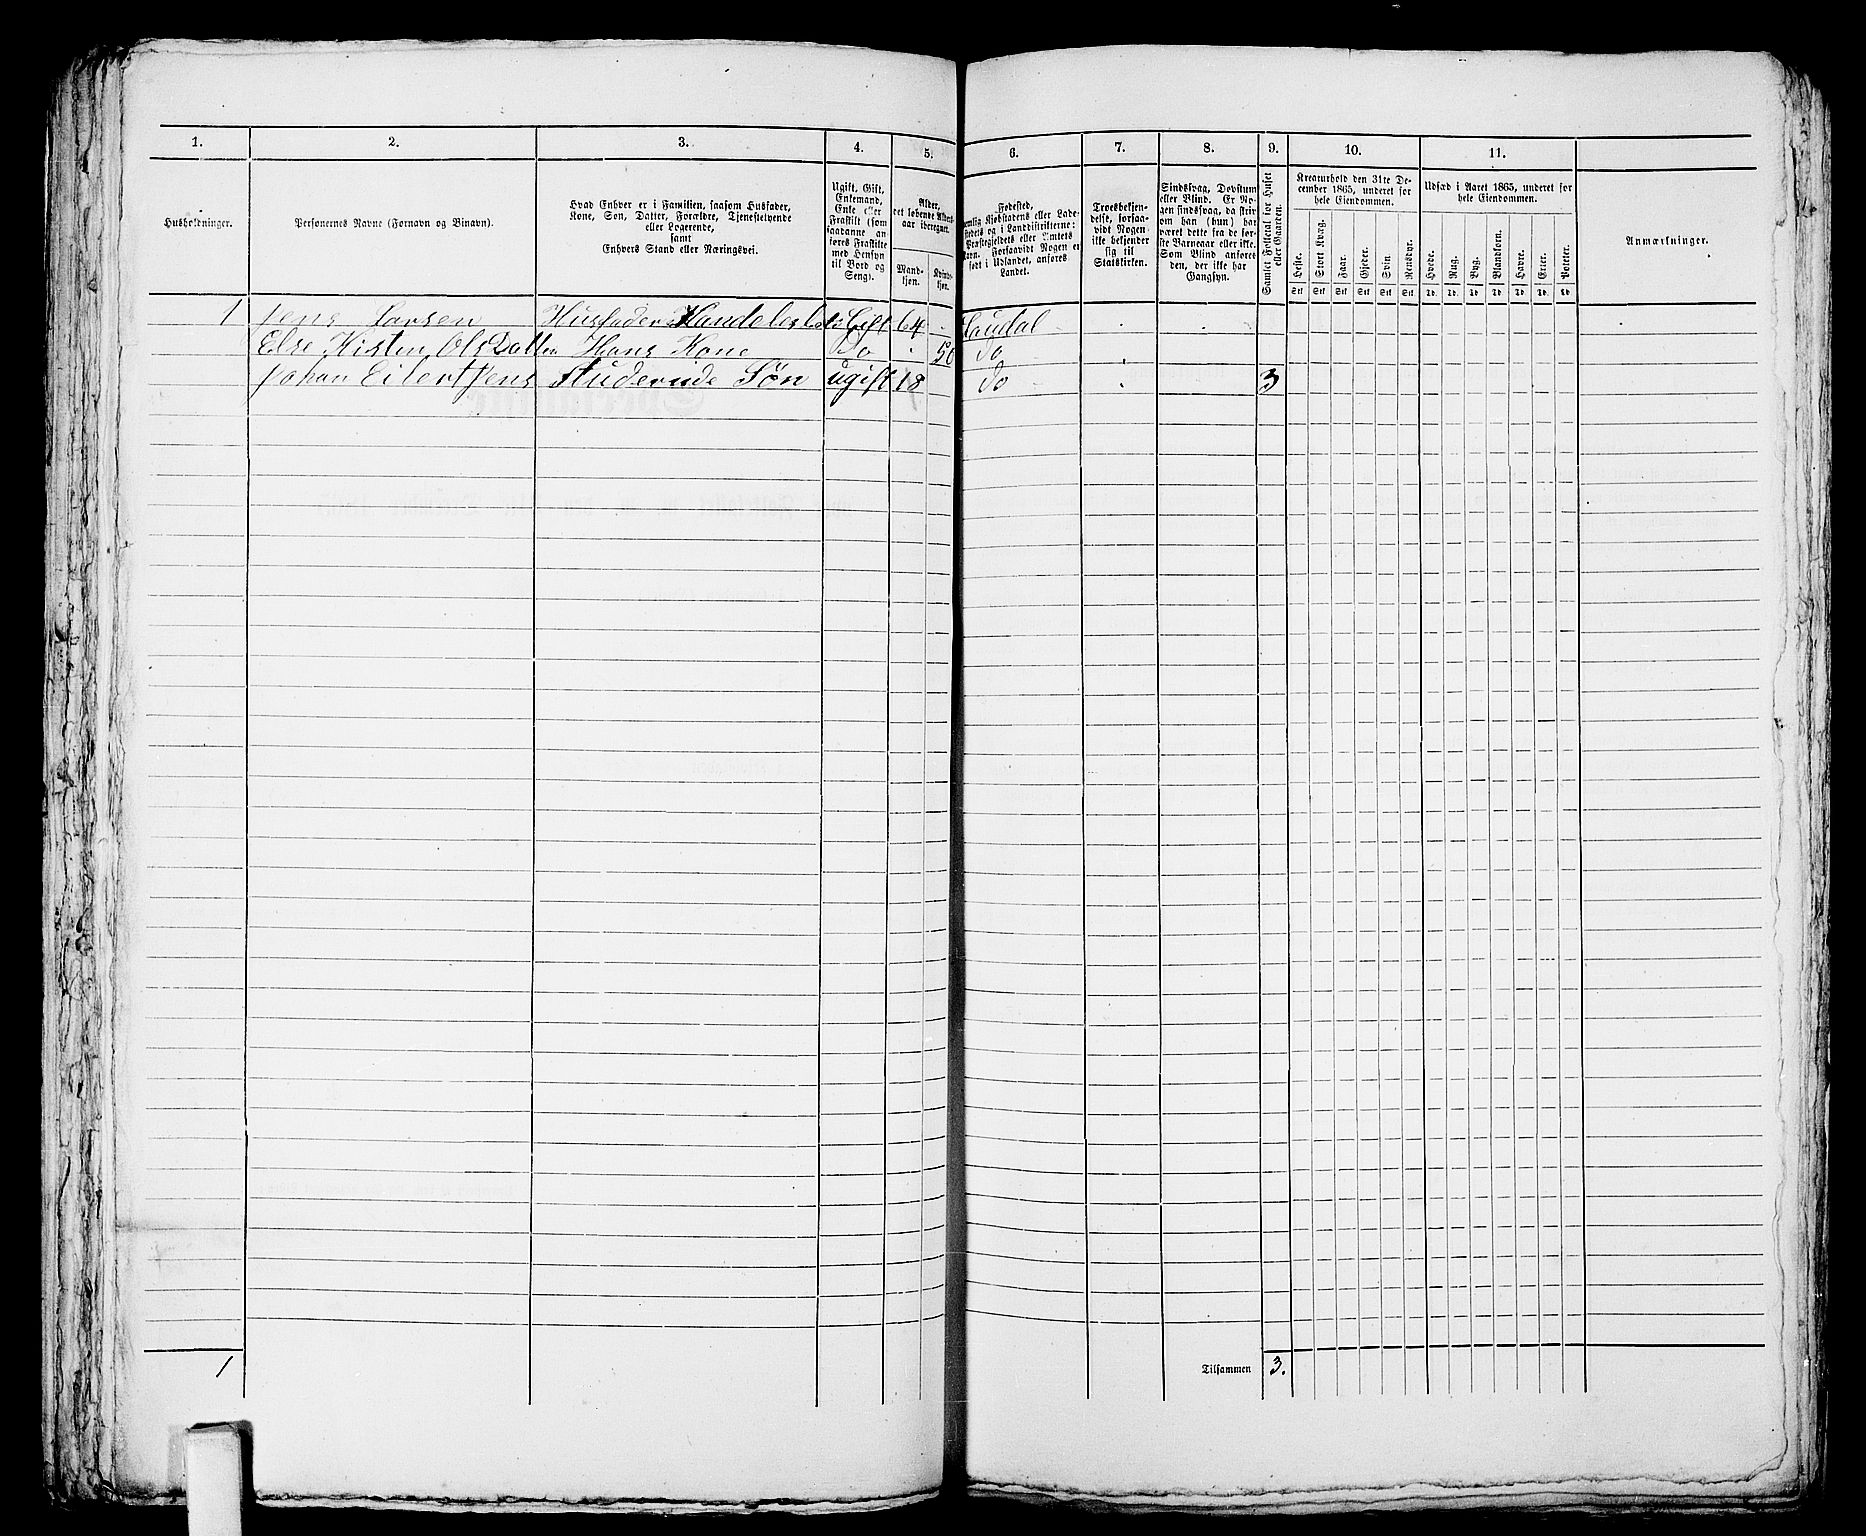 1. 2. 3. 4. 5. 6. 7. 8. 9. 10. 11.
Husholdninger.
Personernes Navne (Fornavn og Binavn).
Hvad Enhver er i Familien, saasom Husfader,
Kone, Søn, Datter, Forældre, Tjenestetyende
eller Logerende,
samt
Enhvers Stand eller Næringsvei.
Ugift, Gift,
Enkemand,
Enke eller
Fraskilt (som
saadanne an-
føres Fraskilte
med Hensyn
til Bord og
Seng).
Alder,
det løbende Alders-
aar iberegnet.
Mand-
kjøn.
Kvinde-
kjøn.
Fødested,
nemlig Kjøbstadens eller Lade-
stedets og i Landdistrikterne:
Præstegjeldets eller Amtets
Navn. Forsaavidt Nogen er
født i Udlandet, anføres
Landet.
Troesbekjen-
delse, forsaa-
vidt Nogen
ikke bekjender
sig til
Statskirken.
Sindssvag, Døvstum
eller Blind. Er No-
gen sindssvag, da skriv
om han (hun) har
været dette fra de før-
ste Barneaar eller ikke.
Som Blind anføres
den, der ikke har
Gangsyn.
Samlet Folketal for Huset
eller Gaarden.
Kreaturhold den 31te De-
cember 1865, underet for
hele Eiendommen.
Heste. Stort Kvæg. Faar. Gjeder. Svin. Rensdyr.
Stk Stk Stk Stk Stk Stk
Udsæd i Aaret 1865, underet for
hele Eiendommen.
Hvede. Rug. Byg. Blandkorn. Havre. Erter. Poteter.
Td. Td. Td. Td. Td. Td. Td.
Anmærkninger.
1 Jens Larsen Husfader Gift 64
Else Kisten Ols Datter Hans Kone Do 50 do
Johan Eilert Jens Studerende Søn ugift 18 do 3
1 Tilsammen 3.